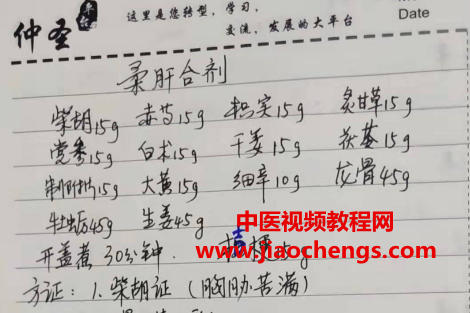 仲圣
这里是您转型,学习,
交流,发展的大平台
Date
柔肝合剂
柴胡15g 赤芍15g 枳实15g 炙甘草15g
党参15g 白术15g 干姜15g 茯苓15g
制附片15g 大黄15g 细辛10g 龙骨45g
牡蛎45g 生姜45g
桔梗
开盖煮30分钟.
中医视频教程网
www.jiaochengs.com
方证:1.柴胡证(胸胁苦满)